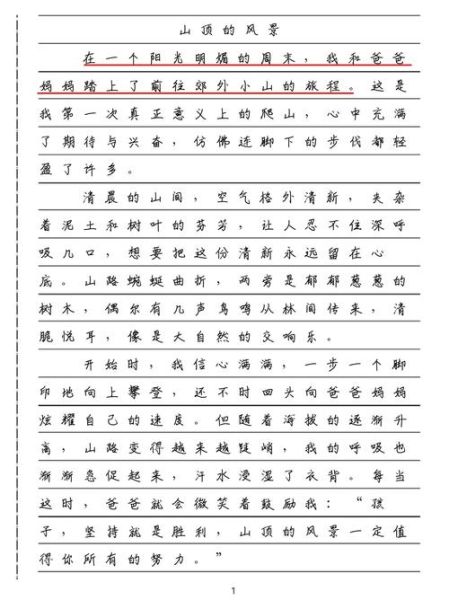 山顶的风景
在一个阳光明媚的周末，我和爸爸
妈妈踏上了前往郊外小山的旅程。这是
我第一次真正意义上的爬山，心中充满
了期待与兴奋，仿佛连脚下的步伐都轻
盈了许多。
清晨的山间，空气格外清新，夹杂
着泥土和树叶的芬芳，让人忍不住深呼
吸几口，想要把这份清新永远留在心
底。山路蜿蜒曲折，两旁是郁郁葱葱的
树木，偶尔有几声鸟鸣从林间传来，清
脆悦耳，像是大自然的交响乐。
开始时，我信心满满，一步一个脚
印地向上攀登，还不时回头向爸爸妈妈
炫耀自己的速度。但随着海拔的逐渐升
高，山路变得越来越陡峭，我的呼吸也
渐渐急促起来，汗水浸湿了衣背。每当
这时，爸爸就会微笑着鼓励我：“孩
子，坚持就是胜利，山顶的风景一定值
得你所有的努力。”
1